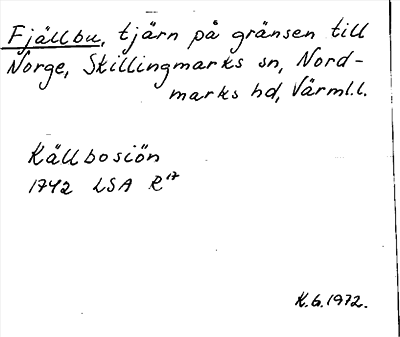 Fjällbu, tjärn på gränsen till
Norge, Skillingmarks sn, Nord-
marks hd, Värml.l.
Källbosiön
1742 LSA R¹⁷
K.G.1972.